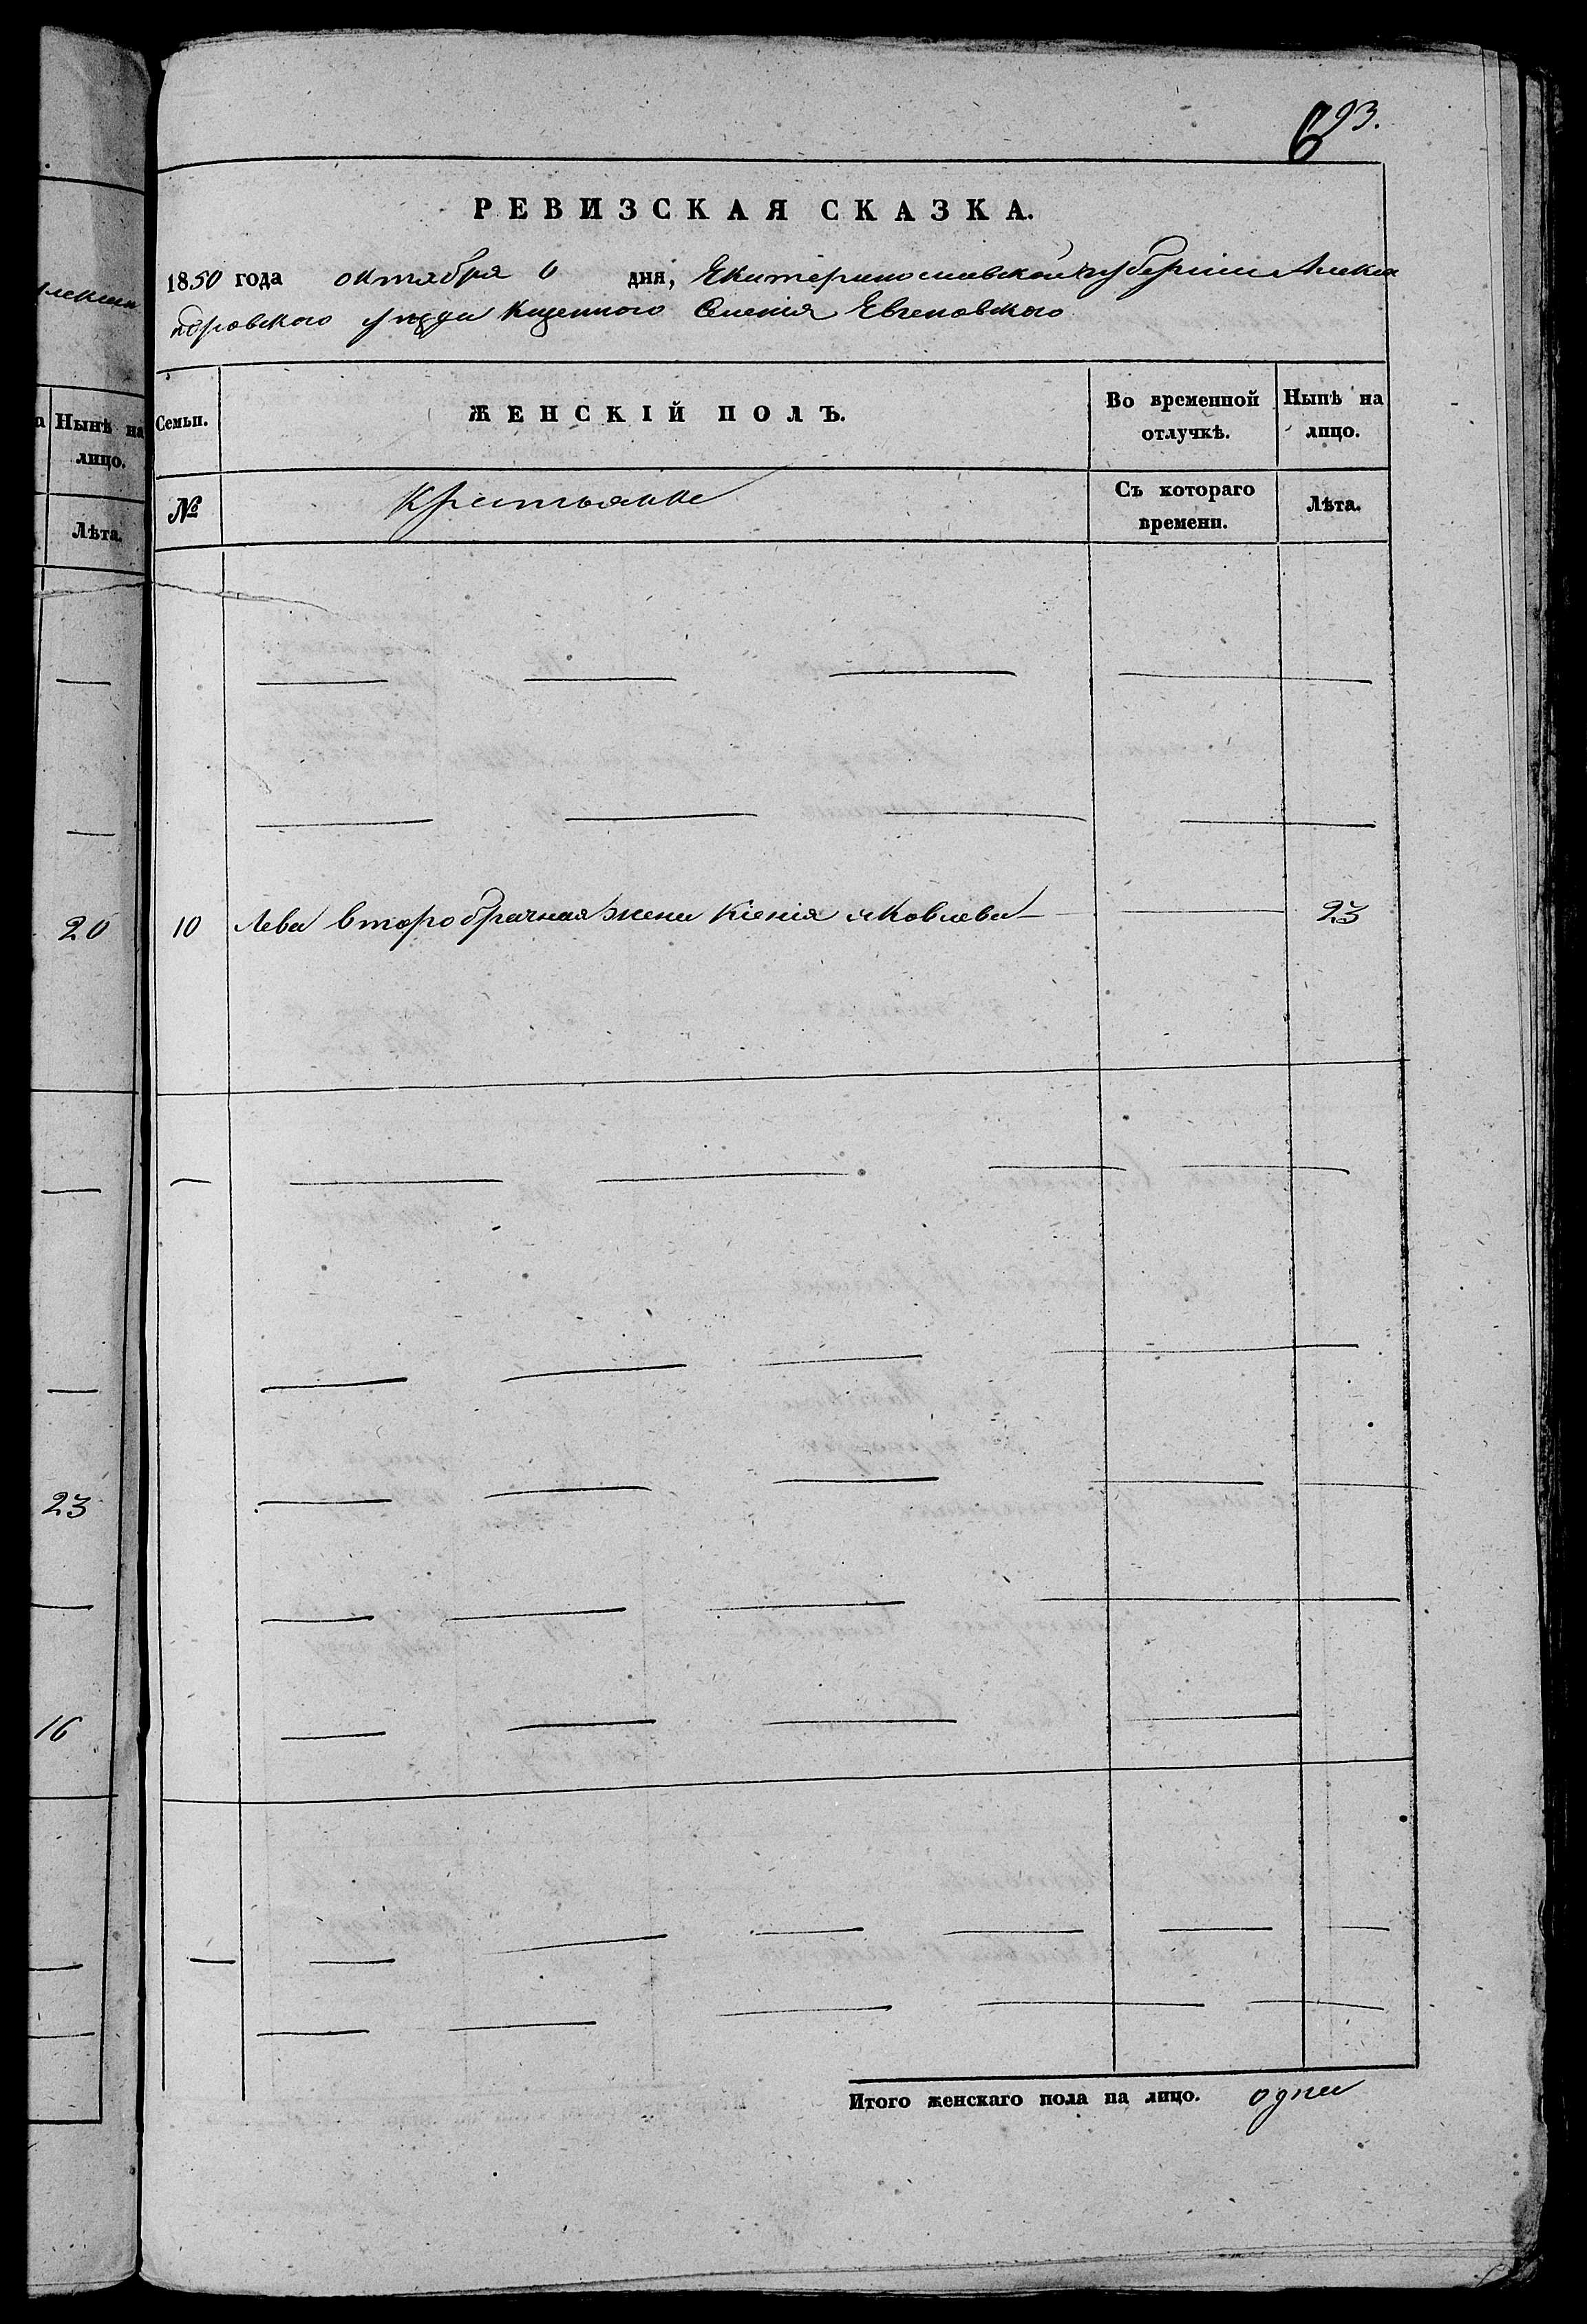 693.
лексан
РЕВИЗСКАЯ СКАЗКА.
1850 года октября 6 дня, Екатеринославской губерніи Алекса
ндровского уезда Селенія Евгеновского
Нынѣ на
лицо.
Лѣта.
Семьи. ЖЕНСКІЙ ПОЛЪ. Во временной отлучкѣ. Нынѣ на лицо.
№ Крестьянка Съ котораго времени. Лѣта.
20
10 Лева второбрачная жена Ксенія Яковлева 23
23
16
Итого женскаго пола на лицо. одна